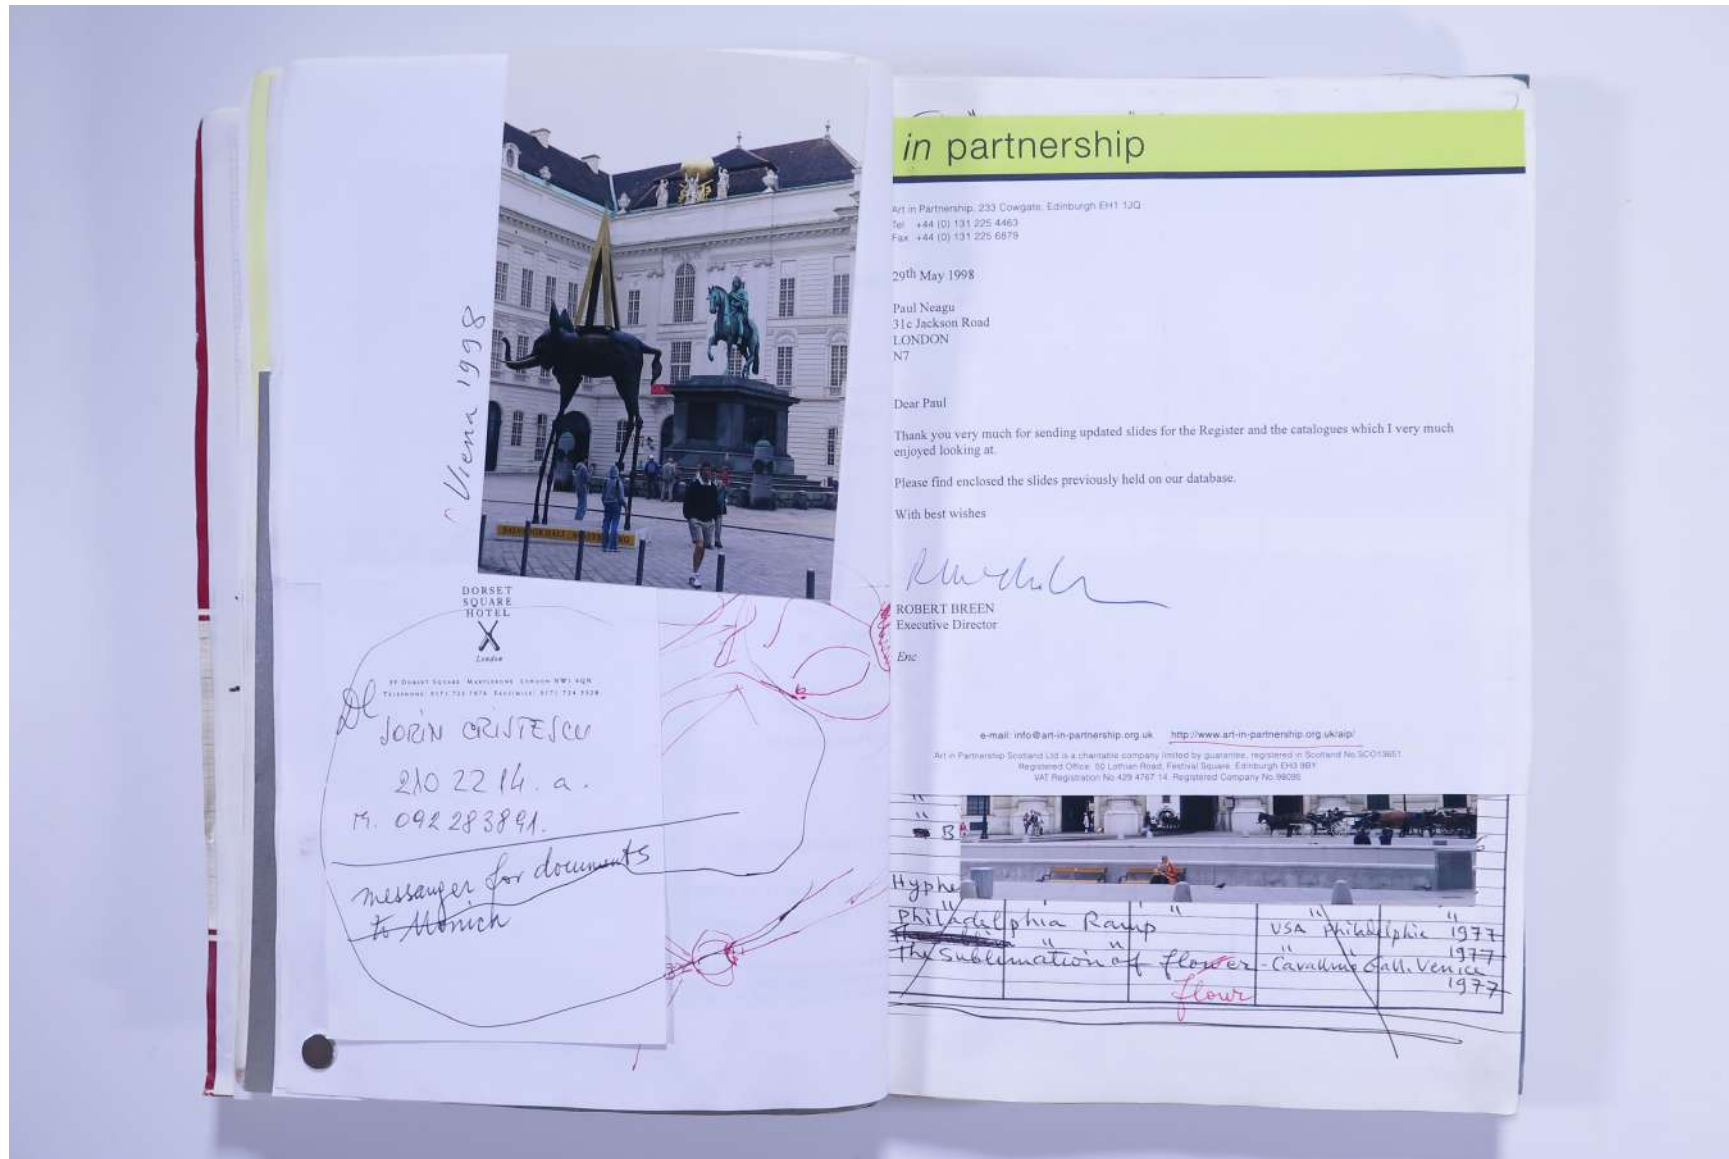 Viena 1998
DORSET
SQUARE
HOTEL
London
39 DORSET SQUARE MARYLEBONE LONDON NW1 6QN
TELEPHONE 0171 723 7874 FACSIMILE 0171 724 3328
Dl
SORIN CRISTESCU
210 22 14. a.
M. 092 283891.
messanger for documents
to Monich
in partnership
Art in Partnership, 233 Cowgate, Edinburgh EH1 1JQ
Tel +44 (0) 131 225 4463
Fax +44 (0) 131 225 6879
29th May 1998
Paul Neagu
31c Jackson Road
LONDON
N7
Dear Paul
Thank you very much for sending updated slides for the Register and the catalogues which I very much
enjoyed looking at.
Please find enclosed the slides previously held on our database.
With best wishes
ROBERT BREEN
Executive Director
Enc
e-mail: info@art-in-partnership.org.uk http://www.art-in-partnership.org.uk/aip/
Art in Partnership Scotland Ltd is a charitable company limited by guarantee, registered in Scotland No.SCO13651
Registered Office: 50 Lothian Road, Festival Square, Edinburgh EH3 9BY
VAT Registration No 429 4767 14. Registered Company No 98095
" B
Hyphe
Philadelphia Ramp " USA Philadelphia 1977
" " " " 1977
The Sublimation of flower - Cavallino Gall. Venice
flour 1977